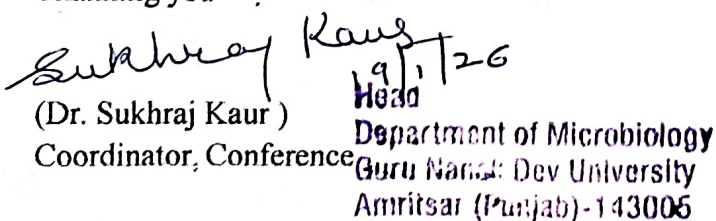 Sukhraj Kaur
19/1/26
(Dr. Sukhraj Kaur )
Coordinator, Conference
Head
Department of Microbiology
Guru Nanak Dev University
Amritsar (Punjab)-143005